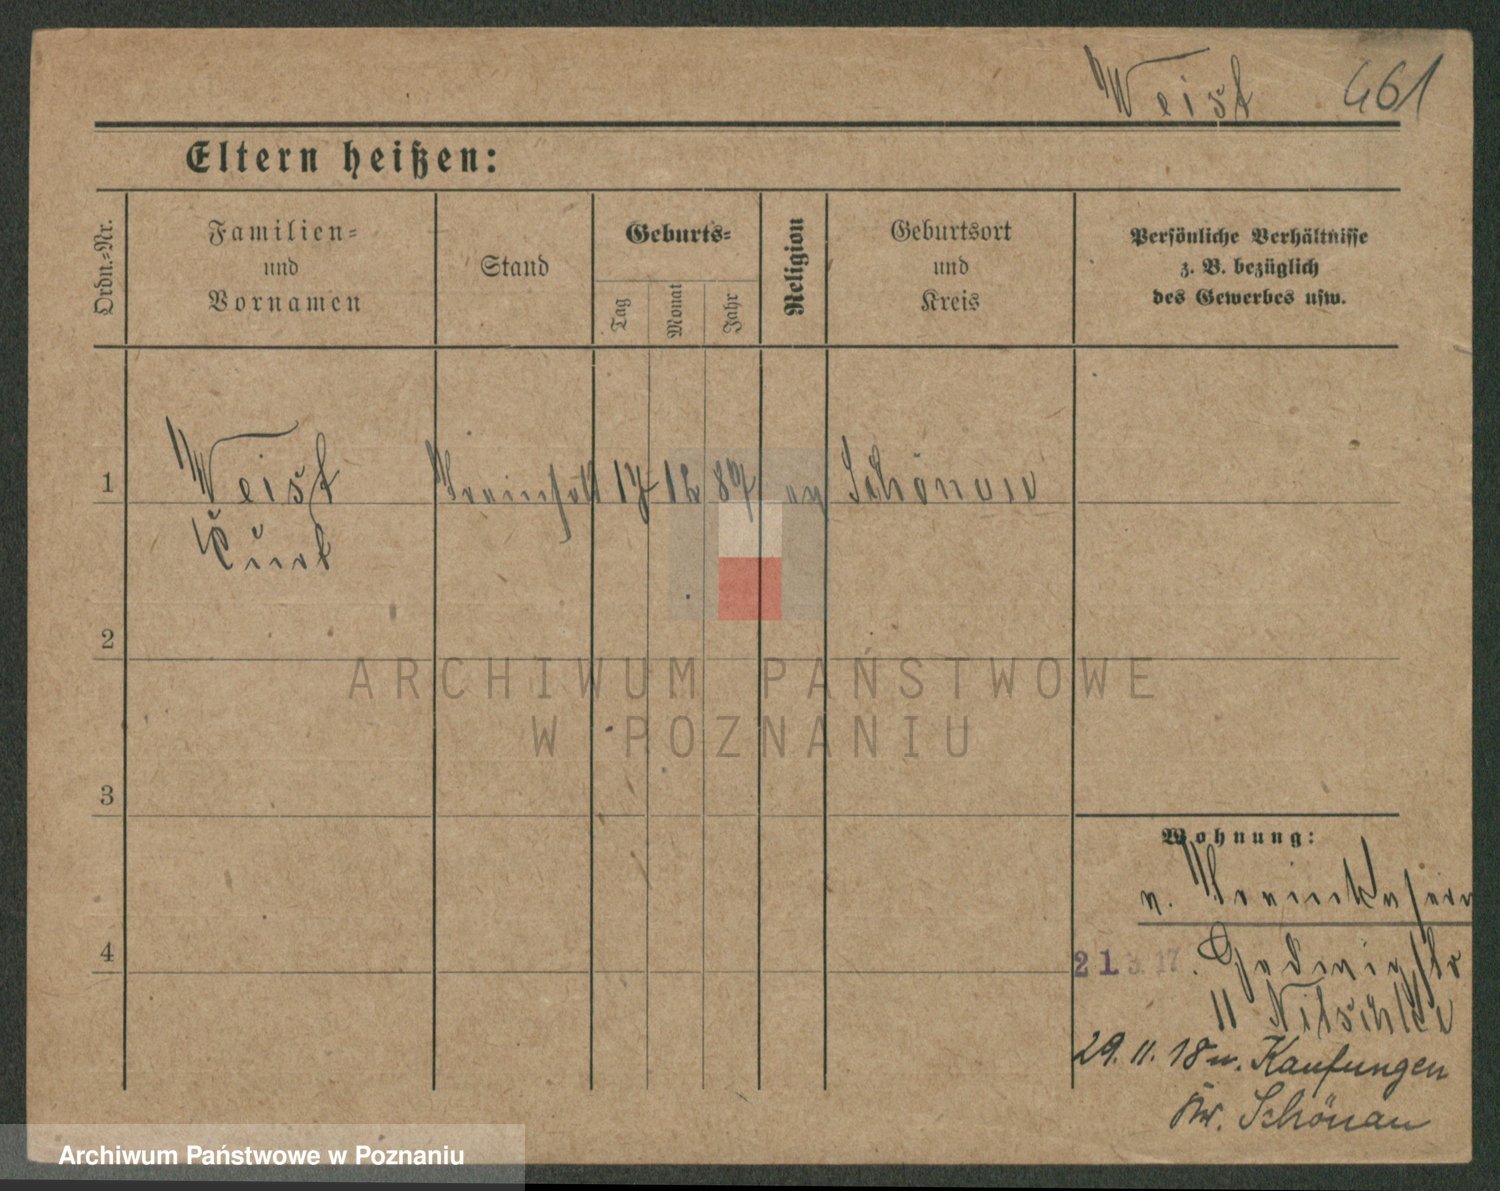 Weist 461
Eltern heißen:
Ordn.-Nr.
Familien-
und
Vornamen
Stand
Geburts-
Tag
Monat
Jahr
Religion
Geburtsort
und
Kreis
Persönliche Verhältnisse
z. B. bezüglich
des Gewerbes usw.
1 Weist 12 87 ev Schönau
Curt
2
3
4
Wohnung:
n.
21 3. 17.
11 Nitschke
29. 11. 18 n. Kaufungen
Kr. Schönau
ARCHIWUM PAŃSTWOWE
W POZNANIU
Archiwum Państwowe w Poznaniu